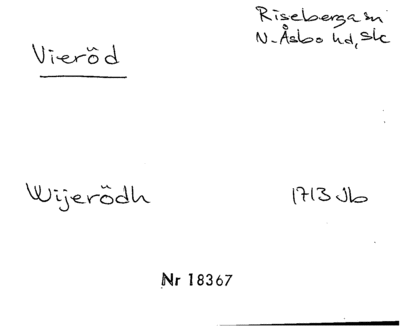 Riseberga sn
Vieröd
N. Åsbo hd, Sk
Wijerödh
1713 Jb
Nr 18367